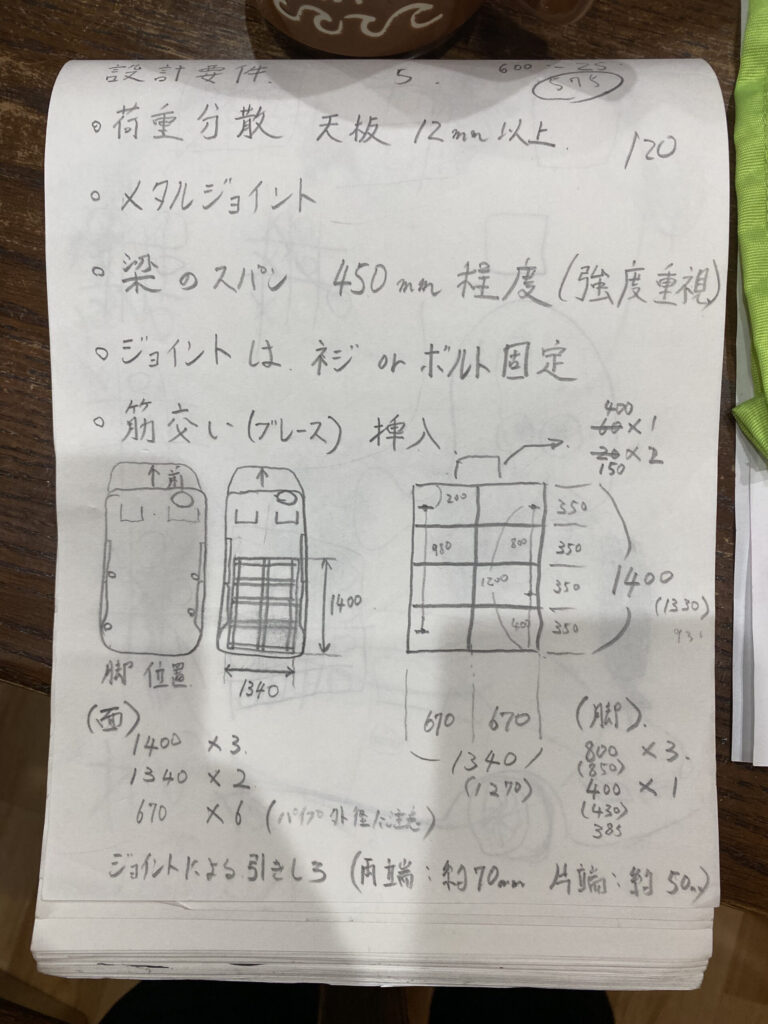 設計要件. 5. 600 - 25
575
○荷重分散 天板 12mm以上. 120
○メタルジョイント
○梁のスパン 450mm程度(強度重視)
○ジョイントは.ネジ orボルト固定
○筋交い(ブレース) 挿入
400
60×1
20×2
150
↑前
↑
1400
1340
脚位置
200
980
800
1200
400
350
350
350
350
1400
(1330)
670 670
1340
(1270)
(面)
1400 ×3.
1340 ×2
670 ×6 (パイプ外径に注意)
(脚).
800 ×3.
(850)
400 ×1
(430)
385
ジョイントによる引きしろ (両端:約70mm 片端:約50mm)